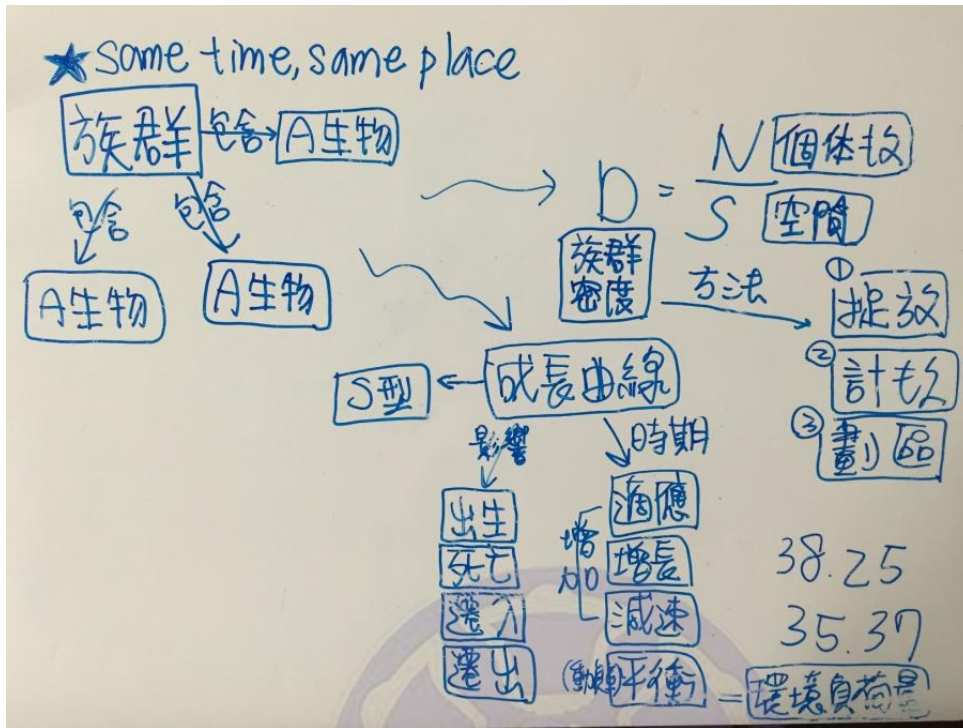 ★ same time, same place
族群 包含 A生物
包含 包含
A生物 A生物
D = N 個体数
S 空間
族群
密度
方法
① 捉放
② 計数
③ 劃區
成長曲線
S型
影響
出生
死亡
遷入
遷出
時期
適應
增長
減速
增加
平衡 = 環境負荷量
38.25
35.37